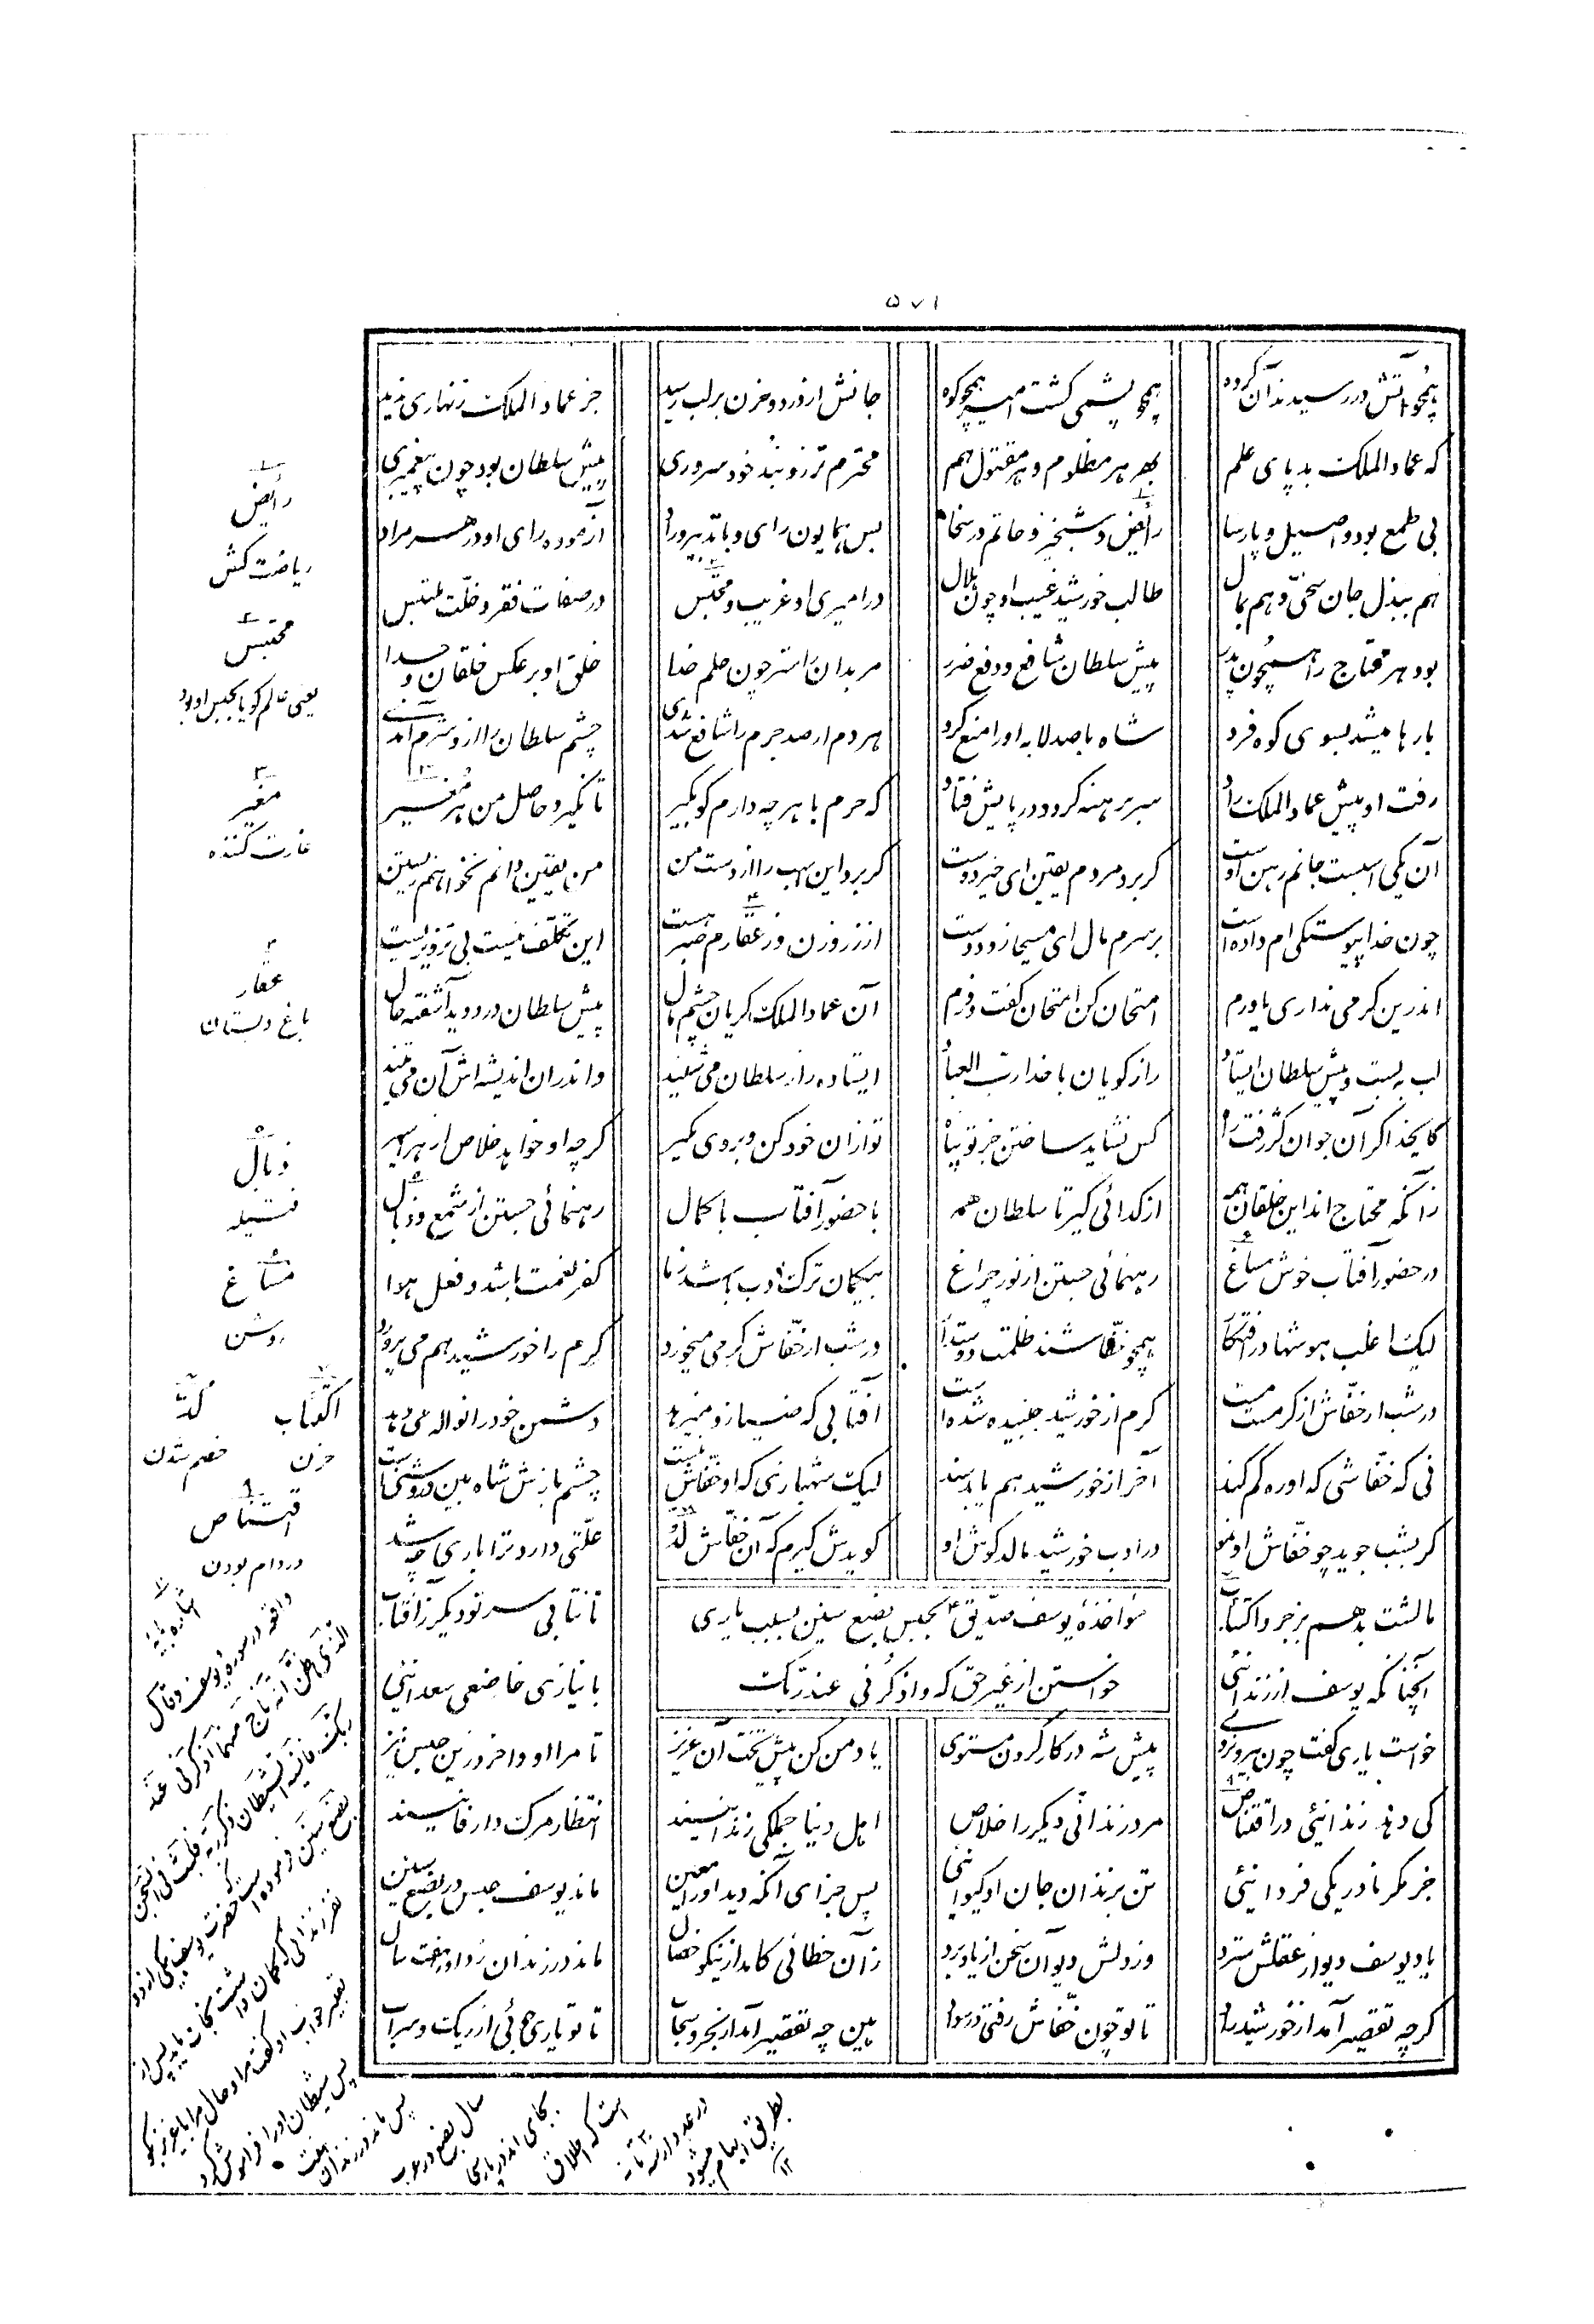 ۵۷۱
همچو آتش در رسیدند آن گروه همچو پشمی گشت امیر همچو کوه جانش از درد و حزن بر لب رسید جز عماد الملک زنهاری ندید
که عماد الملک بد پای علم بهر هر مظلوم و هر مقتول هم محترم تر زو نبد خود سروری پیش سلطان بود چون پیغمبری
بی طمع بود و اصیل و پارسا رائض و شبخیز و حاتم در سخا بس همایون رای و با تدبیر و راد آزموده رای او در هر مراد
هم ببذل جان سخی و هم بمال طالب خورشید غیب او چون هلال در امیری او غریب و محتبس در صفات فقر و خلت ملتبس
بود هر محتاج را همچون پدر پیش سلطان شافع و دفع ضرر مر بدان را ستر چون حلم خدا خلق او بر عکس خلقان و جدا
بارها میشد بسوی کوه فرد شاه با صد لابه او را منع کرد هر دم ار صد جرم را شافع شدی چشم سلطان را ازو شرم آمدی
رفت او پیش عماد الملک راد سر برهنه کرد و در پایش فتاد که حرم با هر چه دارم گو بگیر تا نگیرد حاصل من هر مغیر
آن یکی اسبست جانم رهن اوست گر برد مردم یقین ای خیر دوست گر برد این اسب را از دست من من یقین دانم نخواهم زیستن
چون خدا پیوستگی ام داده است بر سرم مال ای مسیحا زود دست از زر و زن وز عقارم صبر هست این تکلف نیست بی تزویریست
اندرین گر می نداری باورم امتحان کن امتحان گفت و قدم آن عماد الملک گریان چشم مال پیش سلطان در دوید آشفته حال
لب به بست و پیش سلطان ایستاد راز گویان با خدا رب العباد ایستاده راز سلطان می شنید و اندران اندیشه اش آن می تنید
کای خدا گر آن جوان کژ رفت راه کس نشاید ساختن جز تو پناه تو ازان خود کن و بر وی مگیر گر چه او خواهد خلاص از هر اسیر
زانکه محتاج اند این خلقان همه از گدائی گیر تا سلطان همه با حضور آفتاب با کمال رهنمائی جستن از شمع و ذبال
در حضور آفتاب خوش مساغ رهنمائی جستن از نور چراغ بیگمان ترک ادب باشد ز ما کفر نعمت باشد و فعل هوا
لیک اغلب هوشها در افتکار همچو خفاشند ظلمت دوستدار در شب ار خفاش کرمی میخورد کرم را خورشید هم می پرورد
در شب ار خفاش از کرمیست مست کرم از خورشید جنبیده شده است آفتابی که ضیا زو میزهد دشمن خود را نواله می دهد
نی که خفاشی که او ره گم کند آخر از خورشید هم یابد سند لیک شهبازی که او خفاش نیست چشم بازش شاه بین و روشنیست
گر بشب جوید چو خفاش او نمو در ادب خورشید مالد گوش او گویدش گیرم که آن خفاش لد علتی دارد ترا باری چه شد
مالشت بدهم بزجر و اکتئاب تا نتابی سر تو دیگر ز آفتاب
مؤاخذهٔ یوسف صدیق ع بحبس بضع سنین بسبب یاری
خواستن از غیر حق که و اذکرنی عند ربک
آنچنانکه یوسف از زندانئی با نیازی خاضعی سعدانئی
خواست یاری گفت چون بیرون روی پیش شه در کار گردن مستوی یاد من کن پیش تخت آن عزیز تا مرا او واخرد زین حبس نیز
کی دهد زندانئی در اقتناص مرد زندانی دیگر را خلاص اهل دنیا جملگی زندانیند انتظار مرگ دار فانیند
جز مگر نادر یکی فردانئی تن بزندان جان او کیوانئی پس جزای آنکه دید او را معین ماند یوسف حبس در بضع سنین
یاد یوسف دیو از عقلش سترد وز دلش دیو آن سخن از یاد برد زان خطائی کامد از نیکو خصال ماند در زندان ز داور هفت سال
گر چه تقصیر آمد از خورشید داد تا تو چون خفاش رفتی در سواد هین چه تقصیر آمد از بحر و سحاب تا تو یاری جوئی از ریگ و سراب
۱
رائض
ریاضت کش
۲
محتبس
یعنی عالم گویا بحبس او بود
۳
مغیر
غارت کننده
۴
عقار
باغ و بستان
۵
ذبال
فتیله
۶
مساغ
روشن
۷
اکتئاب
حزن
۸
لد
خصم شدن
۹
اقتناص
در دام بودن
اشاره بآیهٔ
واقعه در سورهٔ یوسف و قال
الذی ظن انه ناج منهما اذکرنی عند
ربک فانسیه الشیطان ذکر ربه فلبث فی السجن
بضع سنین
پس شیطان او را فراموش کرد
پس ماند در زندان هفت
سال بضع در عرب
بجای اند در پارسی
است که اطلاق
در عدد از سه تا نه
بطریق ابهام میشود
۱۲